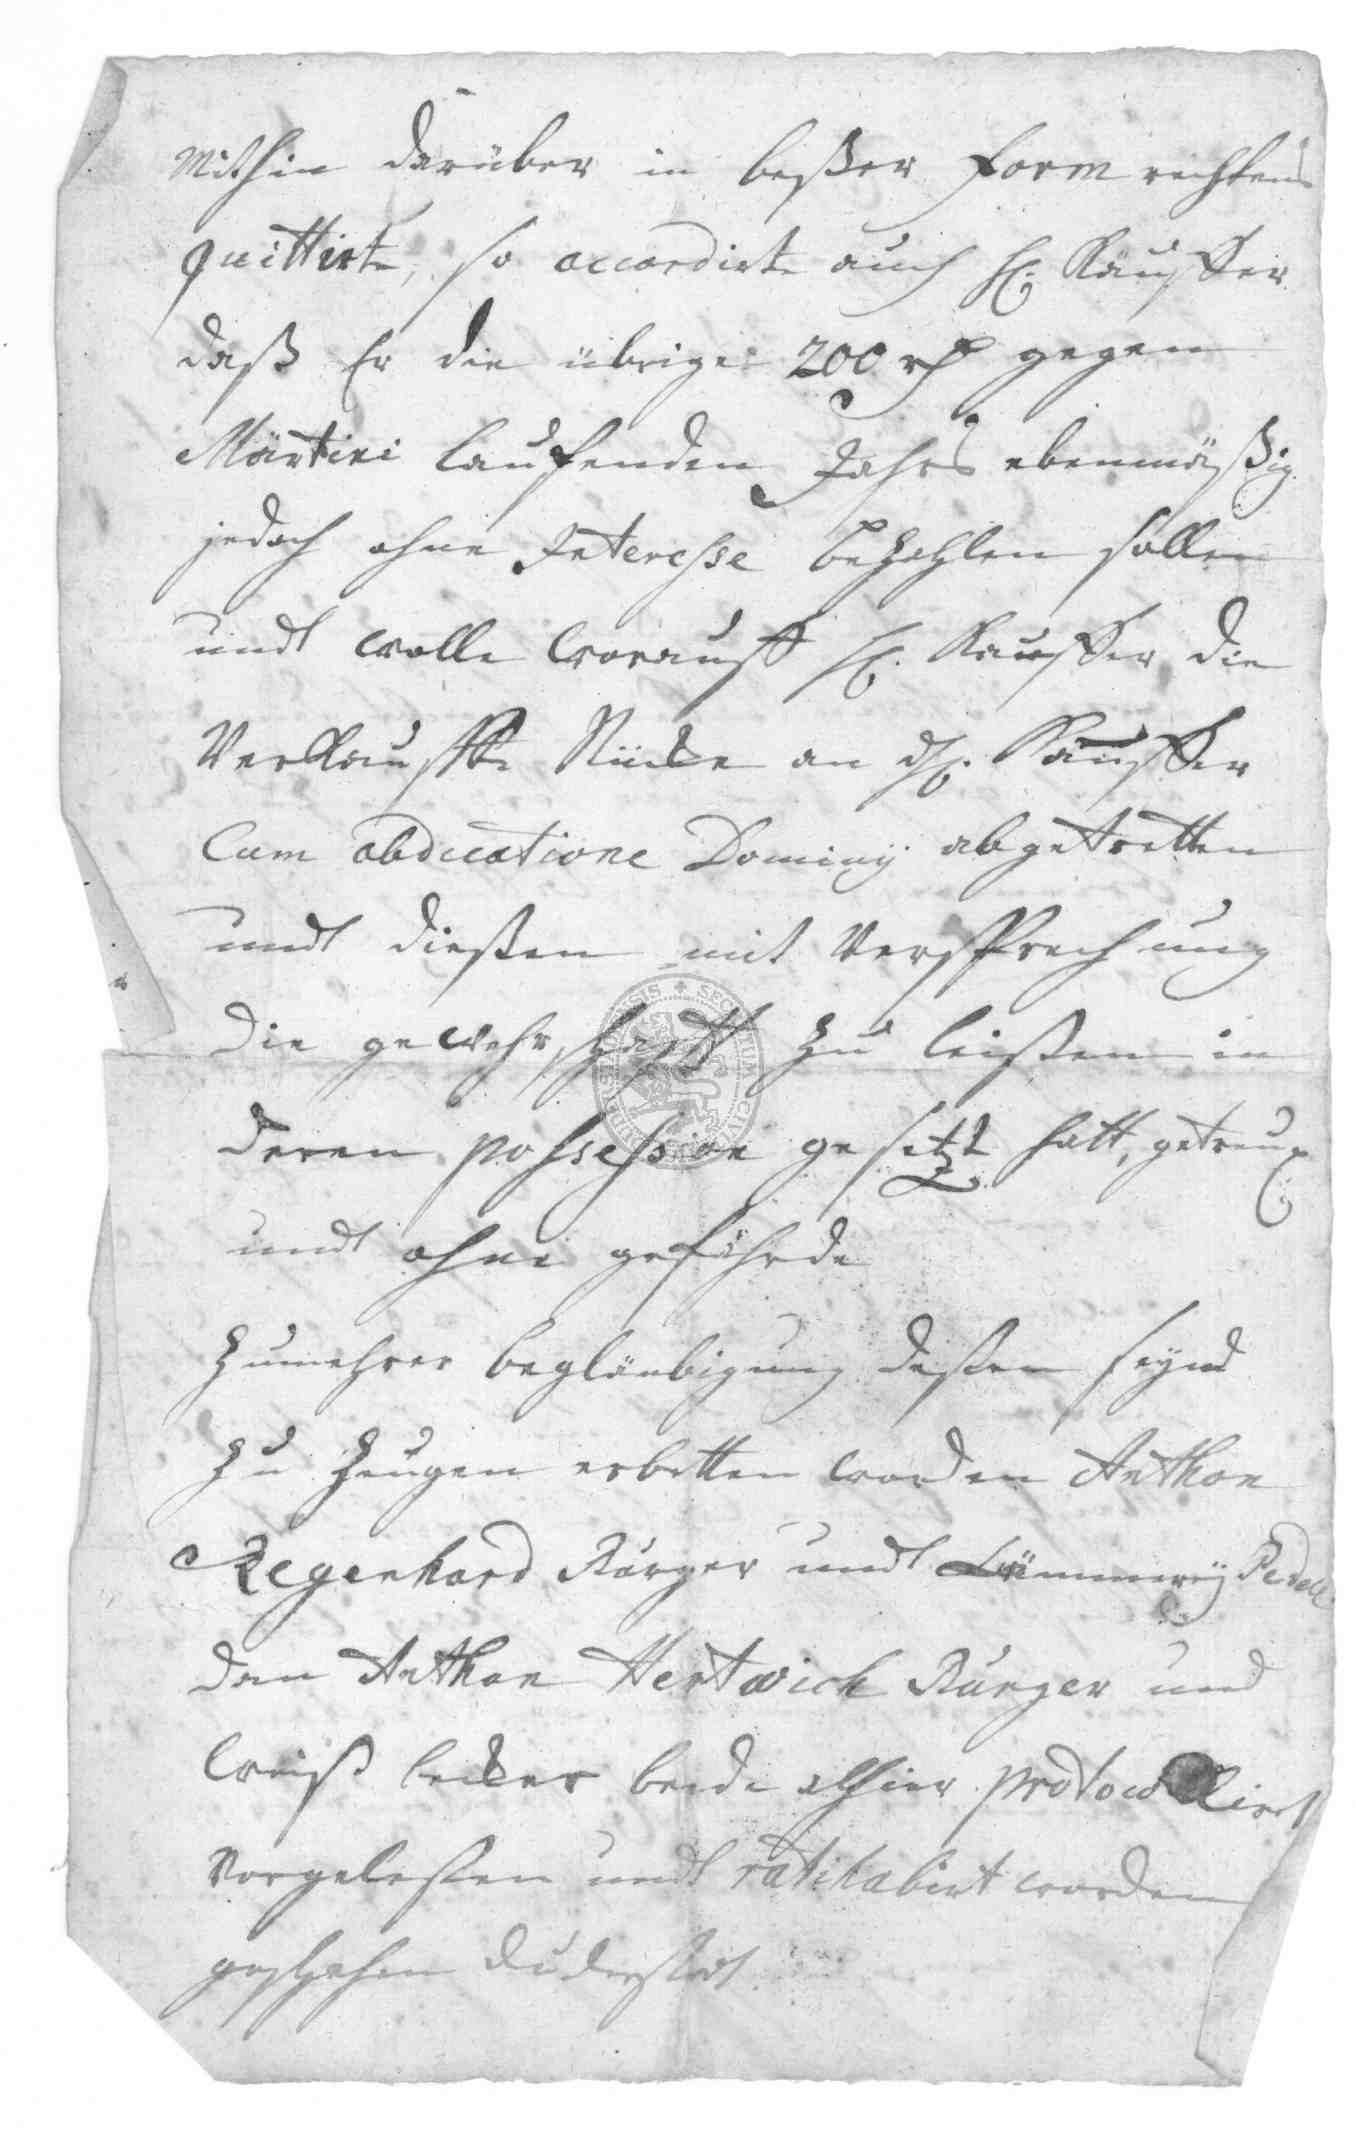 Mithin darüber in beßer Form rechtens
quittirte, so accordirte auch H. Käuffer
daß Er die übrige 200 rh gegen
Martini laufenden Jahrs ebenmäßig
jedoch ohne Interesse bezahlen solle
undt wolle worauff H. Kauffer die
Verkauffte Stücke an dH. Kauffer
Cum abdicatione Dominij abgetretten
undt dießen mit Versprechung
die gewehrschafft zu leisten in
deren possession gesetzt hatt, getreu
undt ohne gefährde
Zumehrer beglaubigung deßen seynd
zu Zeugen erbetten worden Anthon
Regenhard Bürger undt Cämmerey Pedell
dan Anthon Hertwich Bürger und
Weißbecker beede alhier protocollirt
Vorgeleßen undt ratihabirt worden
geschehen Duderstadt
SIGILLUM SECRETUM CIVI